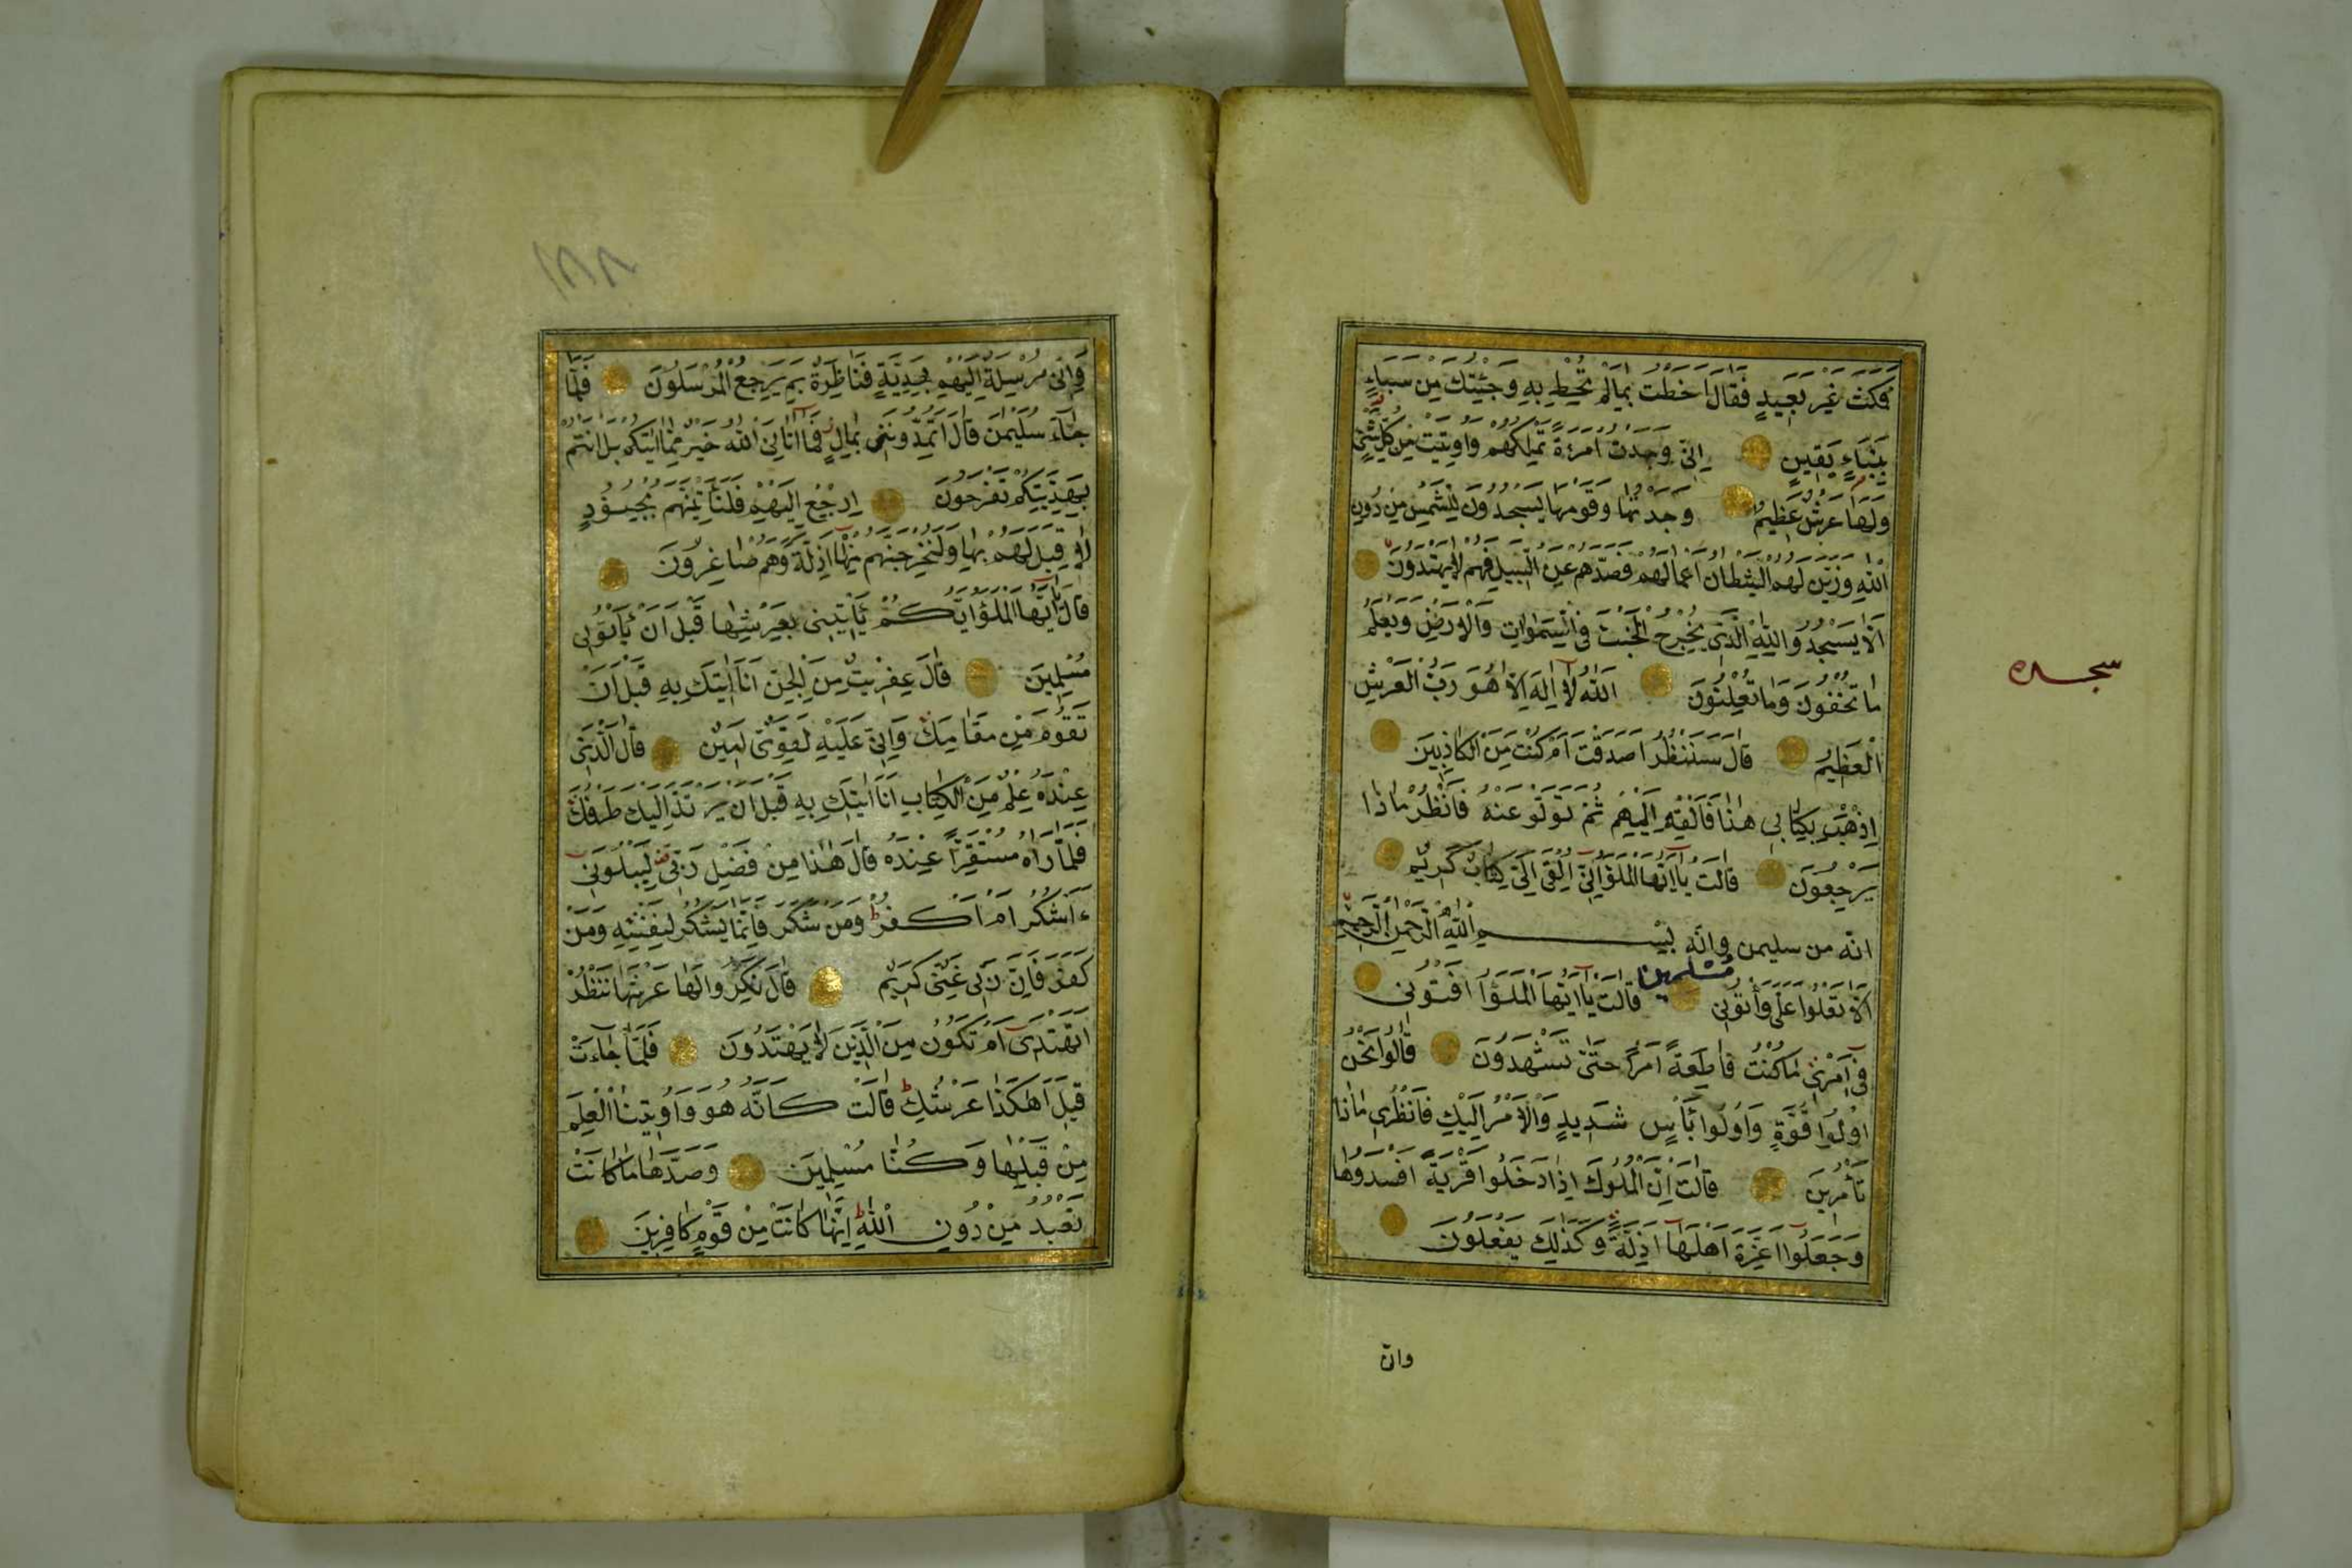 فَمَكَثَ غَيْرَ بَعِيدٍ فَقَالَ اَحَطْتُ بِمَا لَمْ تُحِطْ بِهِ وَجِئْتُكَ مِنْ سَبَاءٍ
بِنَبَاءٍ يَقِينٍ اِنِّى وَجَدْتُ امْرَءَةً تَمْلِكُهُمْ وَاُوتِيَتْ مِنْ كُلِّ شَىْءٍ
وَلَهَا عَرْشٌ عَظِيمٌ وَجَدْتُهَا وَقَوْمَهَا يَسْجُدُونَ لِلشَّمْسِ مِنْ دُونِ
اللّٰهِ وَزَيَّنَ لَهُمُ الشَّيْطَانُ اَعْمَالَهُمْ فَصَدَّهُمْ عَنِ السَّبِيلِ فَهُمْ لَا يَهْتَدُونَ
اَلَّا يَسْجُدُوا لِلّٰهِ الَّذِى يُخْرِجُ الْخَبْءَ فِى السَّمٰوَاتِ وَالْاَرْضِ وَيَعْلَمُ
مَا تُخْفُونَ وَمَا تُعْلِنُونَ اَللّٰهُ لَا اِلٰهَ اِلَّا هُوَ رَبُّ الْعَرْشِ
الْعَظِيمِ قَالَ سَنَنْظُرُ اَصَدَقْتَ اَمْ كُنْتَ مِنَ الْكَاذِبِينَ
اِذْهَبْ بِكِتَابِى هٰذَا فَاَلْقِهْ اِلَيْهِمْ ثُمَّ تَوَلَّ عَنْهُمْ فَانْظُرْ مَاذَا
يَرْجِعُونَ قَالَتْ يَا اَيُّهَا الْمَلَؤُا اِنِّى اُلْقِىَ اِلَىَّ كِتَابٌ كَرِيمٌ
انّه من سليمن وانّه بِسْمِ اللّٰهِ الرَّحْمٰنِ الرَّحِيمِ
اَلَّا تَعْلُوا عَلَىَّ وَأْتُونِى مُسْلِمِينَ قَالَتْ يَا اَيُّهَا الْمَلَؤُا اَفْتُونِى
فِى اَمْرِى مَا كُنْتُ قَاطِعَةً اَمْرًا حَتّٰى تَشْهَدُونَ قَالُوا نَحْنُ
اُولُوا قُوَّةٍ وَاُولُوا بَأْسٍ شَدِيدٍ وَالْاَمْرُ اِلَيْكِ فَانْظُرِى مَاذَا
تَأْمُرِينَ قَالَتْ اِنَّ الْمُلُوكَ اِذَا دَخَلُوا قَرْيَةً اَفْسَدُوهَا
وَجَعَلُوا اَعِزَّةَ اَهْلِهَا اَذِلَّةً وَكَذٰلِكَ يَفْعَلُونَ
وانّ
سجده
وَاِنِّى مُرْسِلَةٌ اِلَيْهِمْ بِهَدِيَّةٍ فَنَاظِرَةٌ بِمَ يَرْجِعُ الْمُرْسَلُونَ فَلَمَّا
جَاءَ سُلَيْمٰنَ قَالَ اَتُمِدُّونَنِى بِمَالٍ فَمَا اٰتَانِىَ اللّٰهُ خَيْرٌ مِمَّا اٰتٰيكُمْ بَلْ اَنْتُمْ
بِهَدِيَّتِكُمْ تَفْرَحُونَ اِرْجِعْ اِلَيْهِمْ فَلَنَأْتِيَنَّهُمْ بِجُنُودٍ
لَا قِبَلَ لَهُمْ بِهَا وَلَنُخْرِجَنَّهُمْ مِنْهَا اَذِلَّةً وَهُمْ صَاغِرُونَ
قَالَ يَا اَيُّهَا الْمَلَؤُا اَيُّكُمْ يَأْتِينِى بِعَرْشِهَا قَبْلَ اَنْ يَأْتُونِى
مُسْلِمِينَ قَالَ عِفْرِيتٌ مِنَ الْجِنِّ اَنَا اٰتِيكَ بِهِ قَبْلَ اَنْ
تَقُومَ مِنْ مَقَامِكَ وَاِنِّى عَلَيْهِ لَقَوِىٌّ اَمِينٌ قَالَ الَّذِى
عِنْدَهُ عِلْمٌ مِنَ الْكِتَابِ اَنَا اٰتِيكَ بِهِ قَبْلَ اَنْ يَرْتَدَّ اِلَيْكَ طَرْفُكَ
فَلَمَّا رَاٰهُ مُسْتَقِرًّا عِنْدَهُ قَالَ هٰذَا مِنْ فَضْلِ رَبِّى لِيَبْلُوَنِى
ءَاَشْكُرُ اَمْ اَكْفُرُ وَمَنْ شَكَرَ فَاِنَّمَا يَشْكُرُ لِنَفْسِهِ وَمَنْ
كَفَرَ فَاِنَّ رَبِّى غَنِىٌّ كَرِيمٌ قَالَ نَكِّرُوا لَهَا عَرْشَهَا نَنْظُرْ
اَتَهْتَدِى اَمْ تَكُونُ مِنَ الَّذِينَ لَا يَهْتَدُونَ فَلَمَّا جَاءَتْ
قِيلَ اَهٰكَذَا عَرْشُكِ قَالَتْ كَاَنَّهُ هُوَ وَاُوتِينَا الْعِلْمَ
مِنْ قَبْلِهَا وَكُنَّا مُسْلِمِينَ وَصَدَّهَا مَا كَانَتْ
تَعْبُدُ مِنْ دُونِ اللّٰهِ اِنَّهَا كَانَتْ مِنْ قَوْمٍ كَافِرِينَ